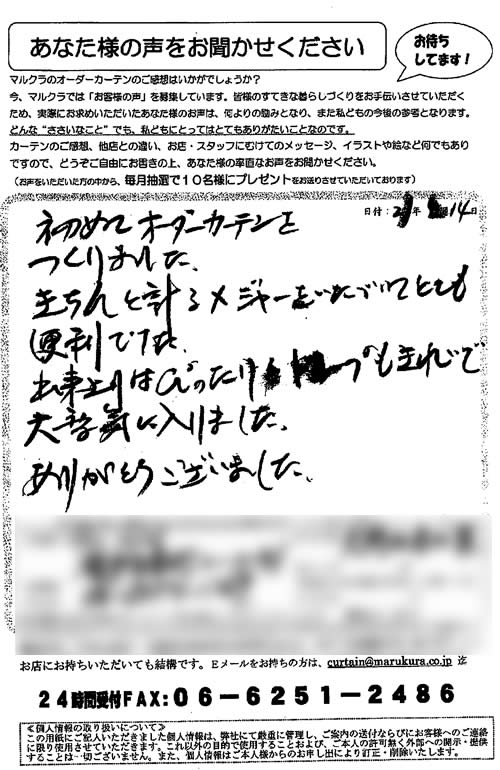 あなた様の声をお聞かせください
お待ち
してます！
マルクラのオーダーカーテンのご感想はいかがでしょうか？
今、マルクラでは「お客様の声」を募集しています。皆様のすてきな暮らしづくりをお手伝いさせていただく
ため、実際にお求めいただいたあなた様のお声は、何よりの励みとなり、また私どもの今後の参考となります。
どんな“ささいなこと”でも、私どもにとってはとてもありがたいことなのです。
カーテンのご感想、他店との違い、お店・スタッフにむけてのメッセージ、イラストや絵など何でもあり
ですので、どうぞご自由にお書きの上、あなた様の率直なお声をお聞かせください。
（お声をいただいた方の中から、毎月抽選で１０名様にプレゼントをお送りさせていただいております）
日付：年 14日
初めてオーダーカーテンを
つくりました、
きちんと計るメジャーをいただいてとても
便利でした。
出来上りはぴったり プもきれいで
大変気に入りました。
ありがとうございました。
お店にお持ちいただいても結構です。Ｅメールをお持ちの方は、curtain@marukura.co.jp 迄
２４時間受付FAX:０６－６２５１－２４８６
≪個人情報の取り扱いについて≫
この用紙にご記入いただきました個人情報は、弊社にて厳重に管理し、ご案内の送付ならびにお客様へのご連絡
に限り使用させていただきます。これ以外の目的で使用することおよび、ご本人の許可無く外部への開示・提供
することは一切ございません。また、個人情報はご本人様からのお申し出により訂正・削除いたします。